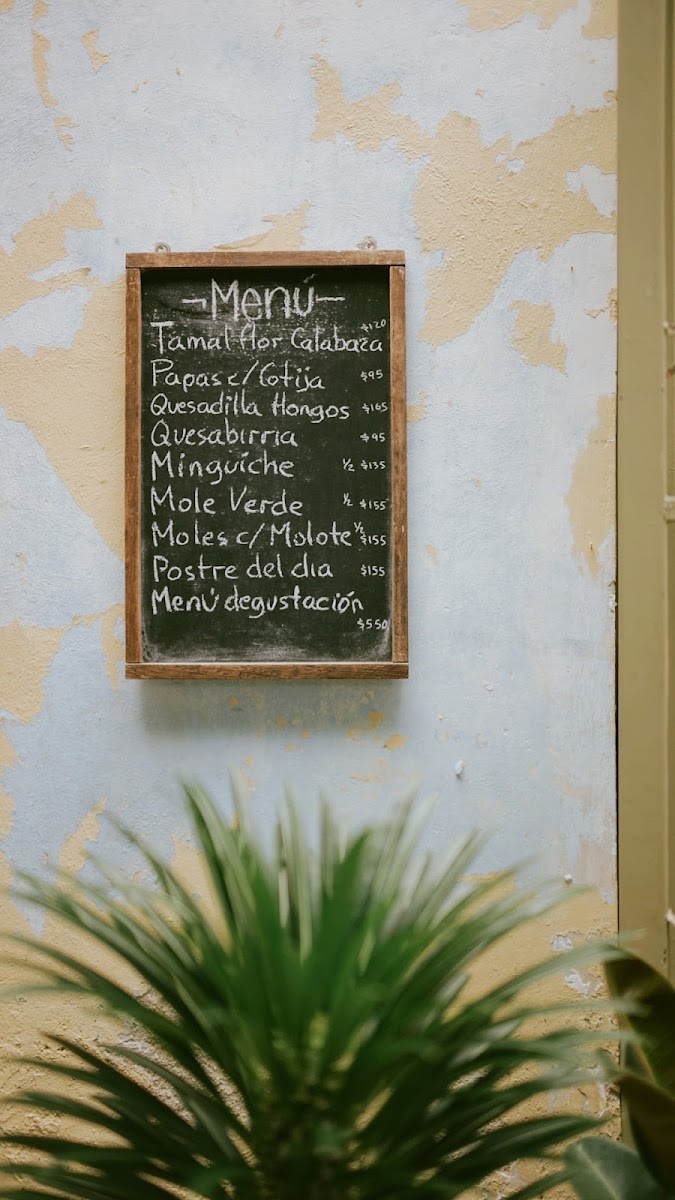 ¬Menú—
Tamal flor Calabaza $120
Papas c/Cotija $95
Quesadilla Hongos $165
Quesabirria $95
Minguiche ½ $135
Mole Verde ½ $155
Moles c/Molote ½ $155
Postre del dia $155
Menú degustación
$550